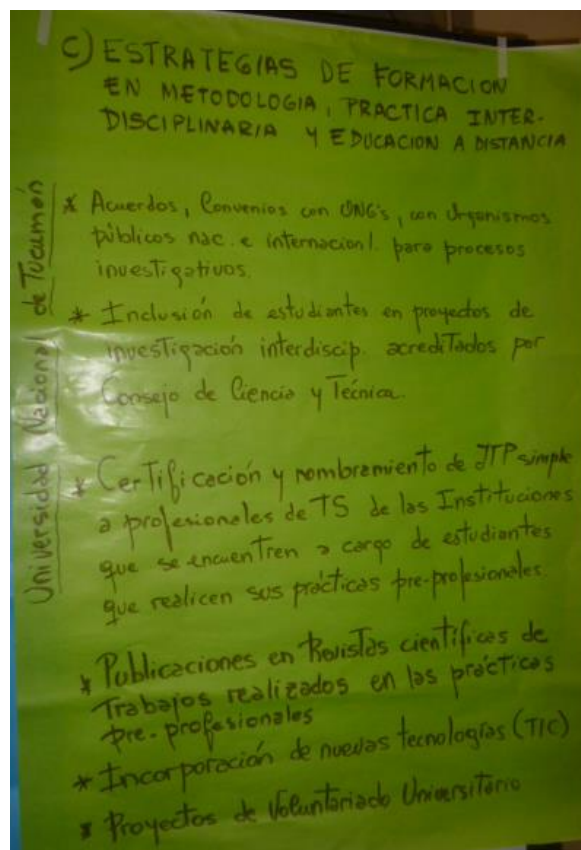 C) ESTRATEGIAS DE FORMACION
EN METODOLOGIA, PRACTICA INTER-
DISCIPLINARIA Y EDUCACION A DISTANCIA
Universidad Nacional de Tucumán
* Acuerdos, Convenios con ONG's, con Organismos
públicos nac. e internacional. para procesos
investigativos.
* Inclusión de estudiantes en proyectos de
investigación interdiscip. acreditados por
Consejo de Ciencia y Técnica.
* Certificación y nombramiento de JTP simple
a profesionales de TS de las Instituciones
que se encuentren a cargo de estudiantes
que realicen sus prácticas pre-profesionales.
* Publicaciones en Revistas científicas de
Trabajos realizados en las prácticas
pre-profesionales
* Incorporación de nuevas tecnologías (TIC)
* Proyectos de Voluntariado Universitario